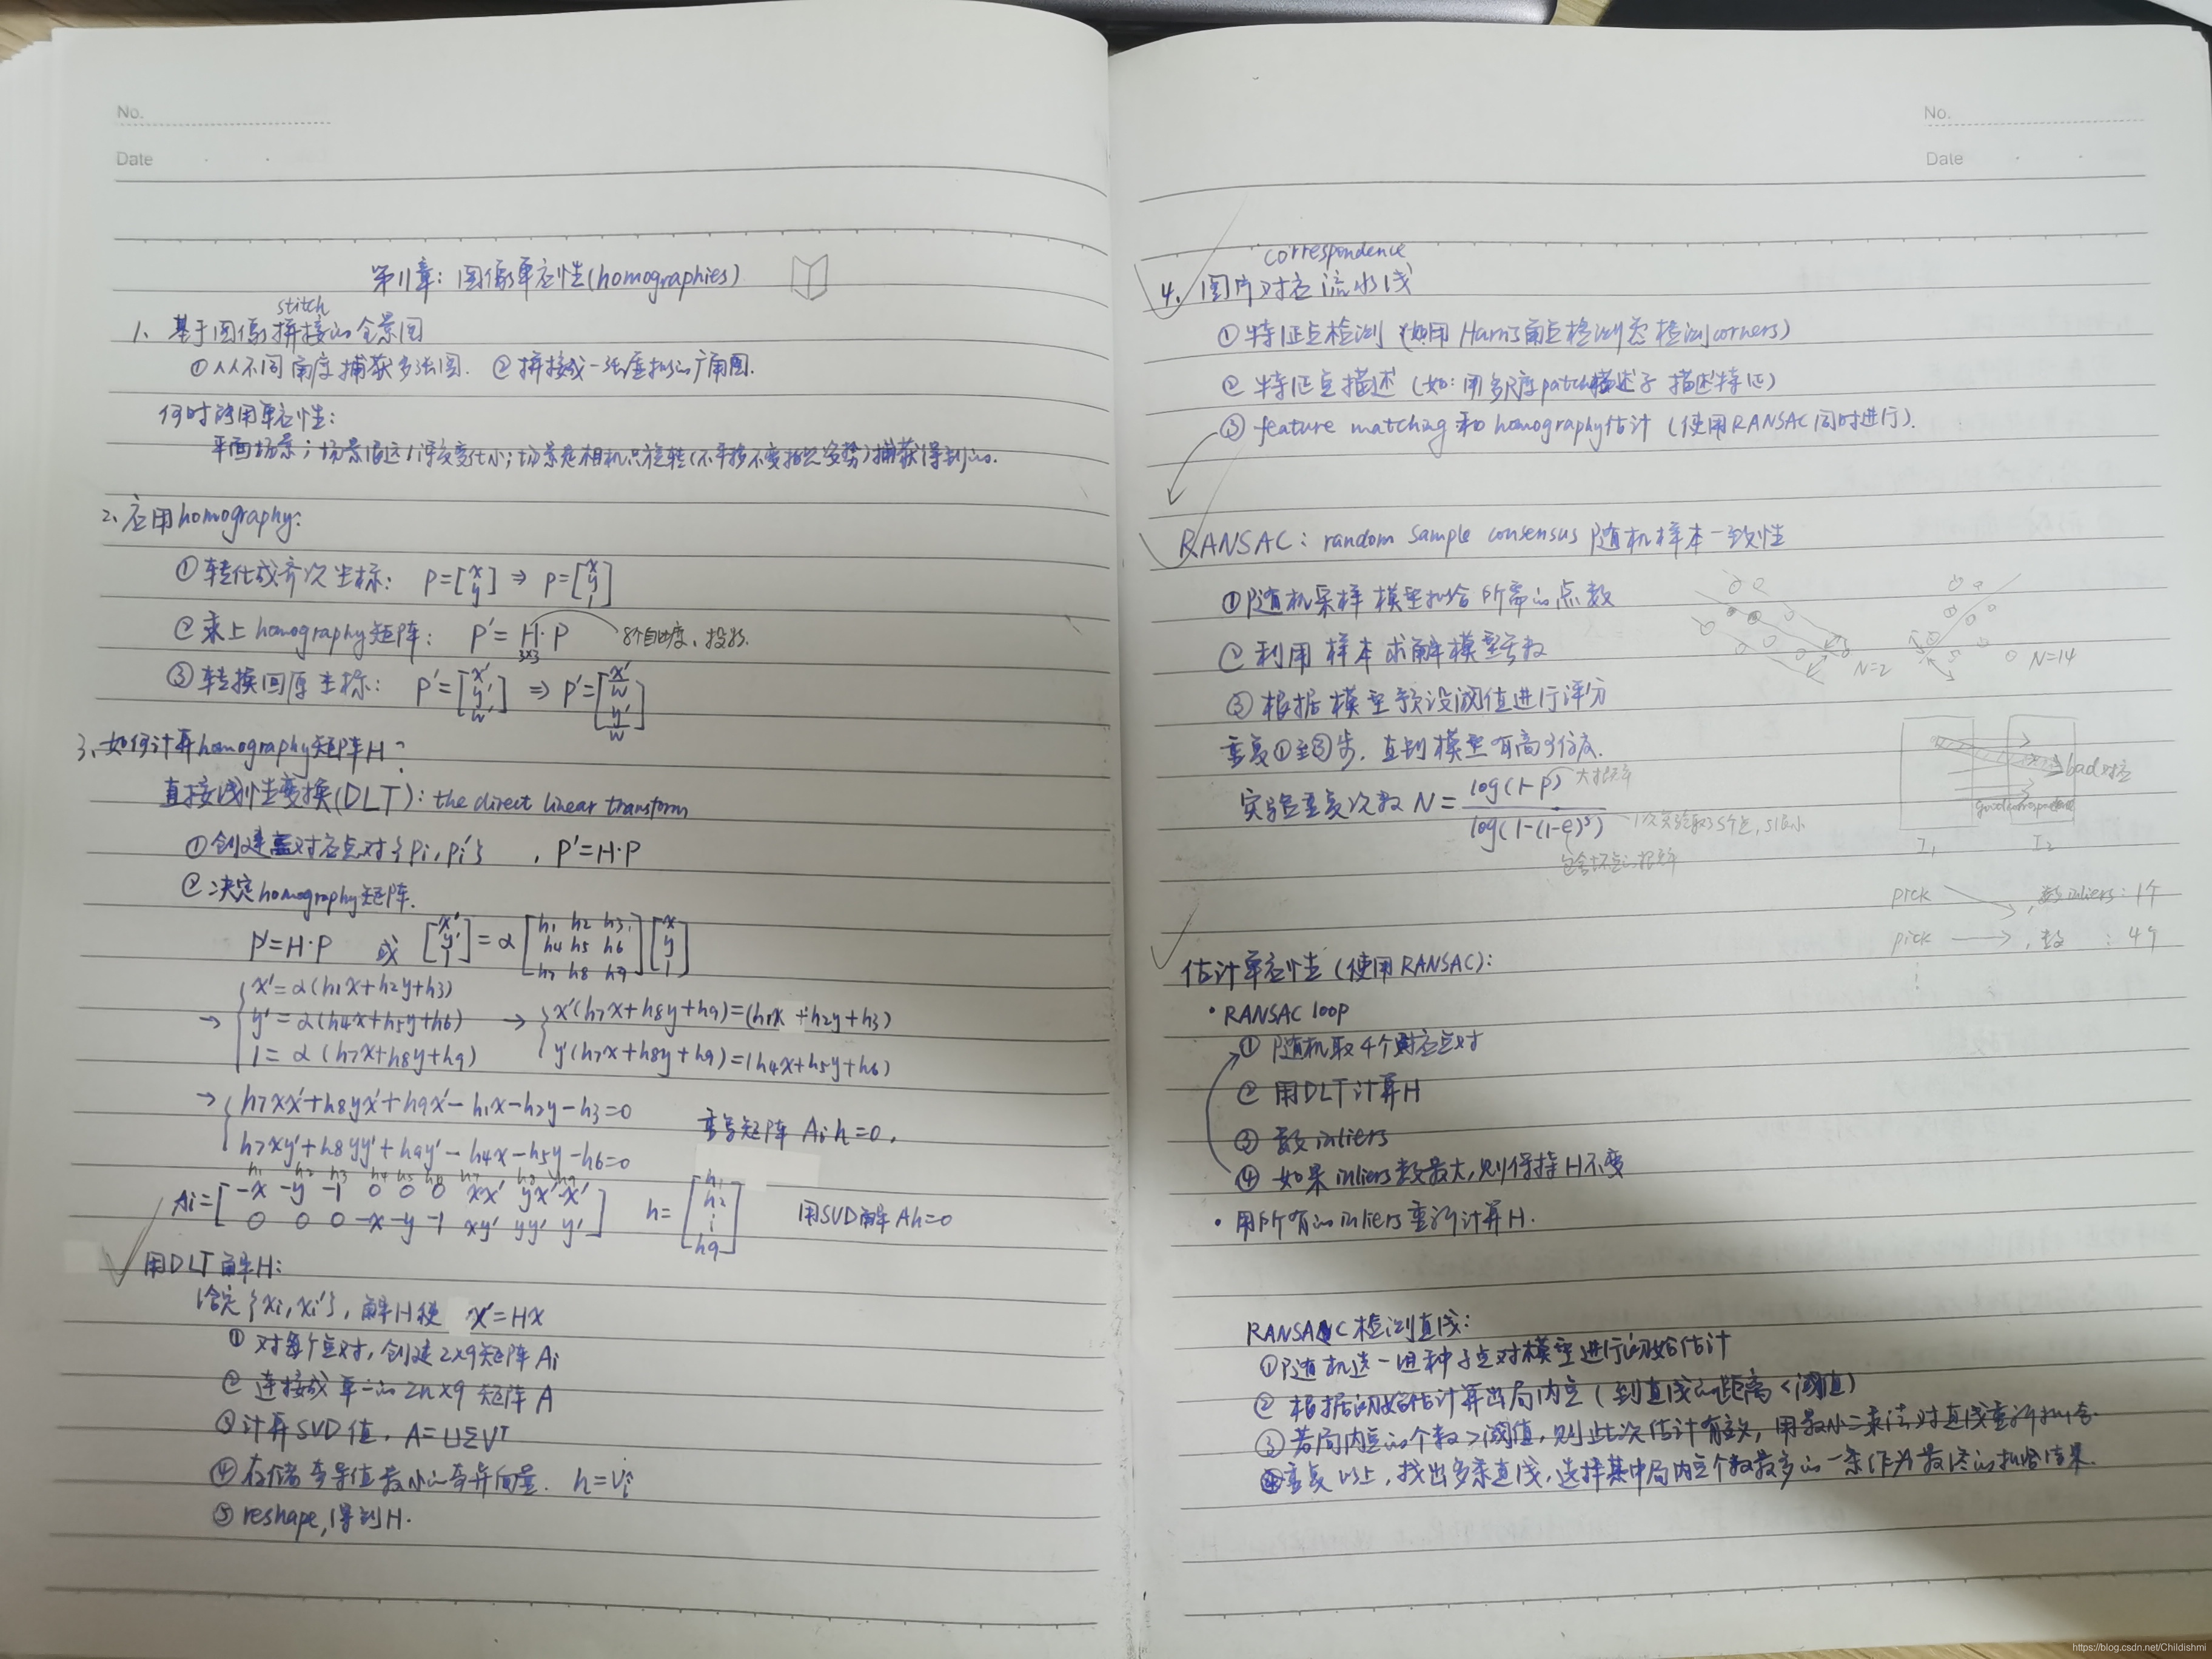 No.
Date
第11章：图像单应性(homographies)
stitch
1、基于图像拼接的全景图
①从不同角度捕获多张图. ②拼接成一张虚拟的广角图.
何时能用单应性：
平面场景；场景很远/深度变化小；场景是相机只旋转(不平移不变拍照姿势)捕获得到的.
2、应用homography：
①转化成齐次坐标： P=[x y] ⇒ P=[x y 1]
②乘上homography矩阵： P'=H·P 8个自由度、投影.
3×3
③转换回原坐标： P'=[x' y' w'] ⇒ P'=[x'/w' y'/w']
3、如何计算homography矩阵H？
直接线性变换(DLT)：the direct linear transform
①创建对应点对{Pi, Pi'} , P'=H·P
②决定homography矩阵.
P'=H·P 或 [x' y' 1]=α[h1 h2 h3 h4 h5 h6 h7 h8 h9][x y 1]
→ { x'=α(h1x+h2y+h3)
y'=α(h4x+h5y+h6) → { x'(h7x+h8y+h9)=(h1x+h2y+h3)
1=α(h7x+h8y+h9) y'(h7x+h8y+h9)=(h4x+h5y+h6)
→ { h7xx'+h8yx'+h9x'-h1x-h2y-h3=0
h7xy'+h8yy'+h9y'-h4x-h5y-h6=0 重写矩阵 Aih=0.
h1 h2 h3 h4 h5 h6 h7 h8 h9
Ai=[-x -y -1 0 0 0 xx' yx' x' h=[h1 h2 ⋮ h9] 用SVD解Ah=0
0 0 0 -x -y -1 xy' yy' y']
用DLT解H：
给定{xi, xi'}, 解H使 x'=Hx
①对每个点对, 创建2×9矩阵Ai
②连接成单一的2n×9矩阵A
③计算SVD值, A=UΣVT
④存储奇异值最小的奇异向量. h=Vi
⑤reshape, 得到H.
No.
Date
correspondence
4、图片对应流水线
①特征点检测 (如用Harris角点检测为检测corners)
②特征点描述 (如：用多尺度patch描述子描述特征)
③feature matching和homography估计 (使用RANSAC同时进行).
RANSAC：random sample consensus 随机样本一致性
①随机采样模型拟合所需的点数
②利用样本求解模型参数
N=2 N=14
③根据模型预设阈值进行评分
重复①至③步, 直到模型有高分.
bad对应
good correspondence
I1 I2
实验重复次数 N=log(1-p)/log(1-(1-e)^s) 大概率
1次实验取s个点, s很小
包含坏点的概率
pick → , 数inliers：1个
pick → , 数 ：4个
估计单应性 (使用RANSAC)：
· RANSAC loop
①随机取4个对应点对
②用DLT计算H
③数inliers
④如果inliers数最大, 则保持H不变
· 用所有的inliers重新计算H.
RANSAC检测直线：
①随机选一组种子点对模型进行初始估计
②根据初始估计算出局内点 (到直线的距离<阈值)
③若局内点的个数>阈值, 则此次估计有效, 用最小二乘法对直线重新拟合.
④重复以上, 找出多条直线, 选择其中局内点个数最多的一条作为最终的拟合结果.
https://blog.csdn.net/Childishmi